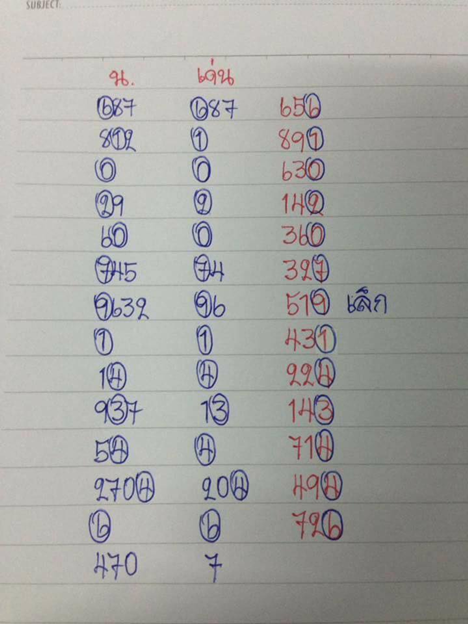 SUBJECT:
น. เด่น
687 687 656
812 1 891
0 0 630
29 2 142
60 0 360
745 74 327
9632 96 519 เล็ก
1 1 431
14 4 224
937 13 143
54 4 714
2704 204 494
6 6 726
470 7